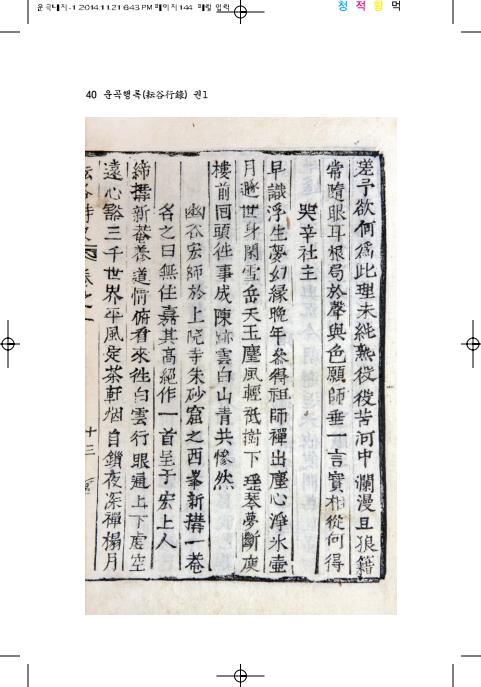 운곡내지-1 2014.11.21 6:43 PM 페이지144 매킬 입력
청 적 황 먹
40 운곡행록(耘谷行錄) 권1
差予欲何爲此理未純熟役役苦河中瀾漫且狼籍
常隨眼耳根局於聲與色願師垂一言實相從何得
哭辛社主
早識浮生夢幻緣晩年叅得祖師禪出塵心淨氷壺
月遯世身閑雪岳天玉麈風輕祇樹下瑶琴夢斷
樓前回頭徃事成陳跡雲白山青共慘然
幽谷宏師於上院寺朱砂窟之西峯新搆一菴
名之曰無住嘉其高絕作一首呈于宏上人
締搆新菴養道情俯看來徃白雲行眼通上下虛空
遠心豁三千世界平風定茶軒烟自鎖夜深禪榻月
耘谷詩史 卷之一 十三